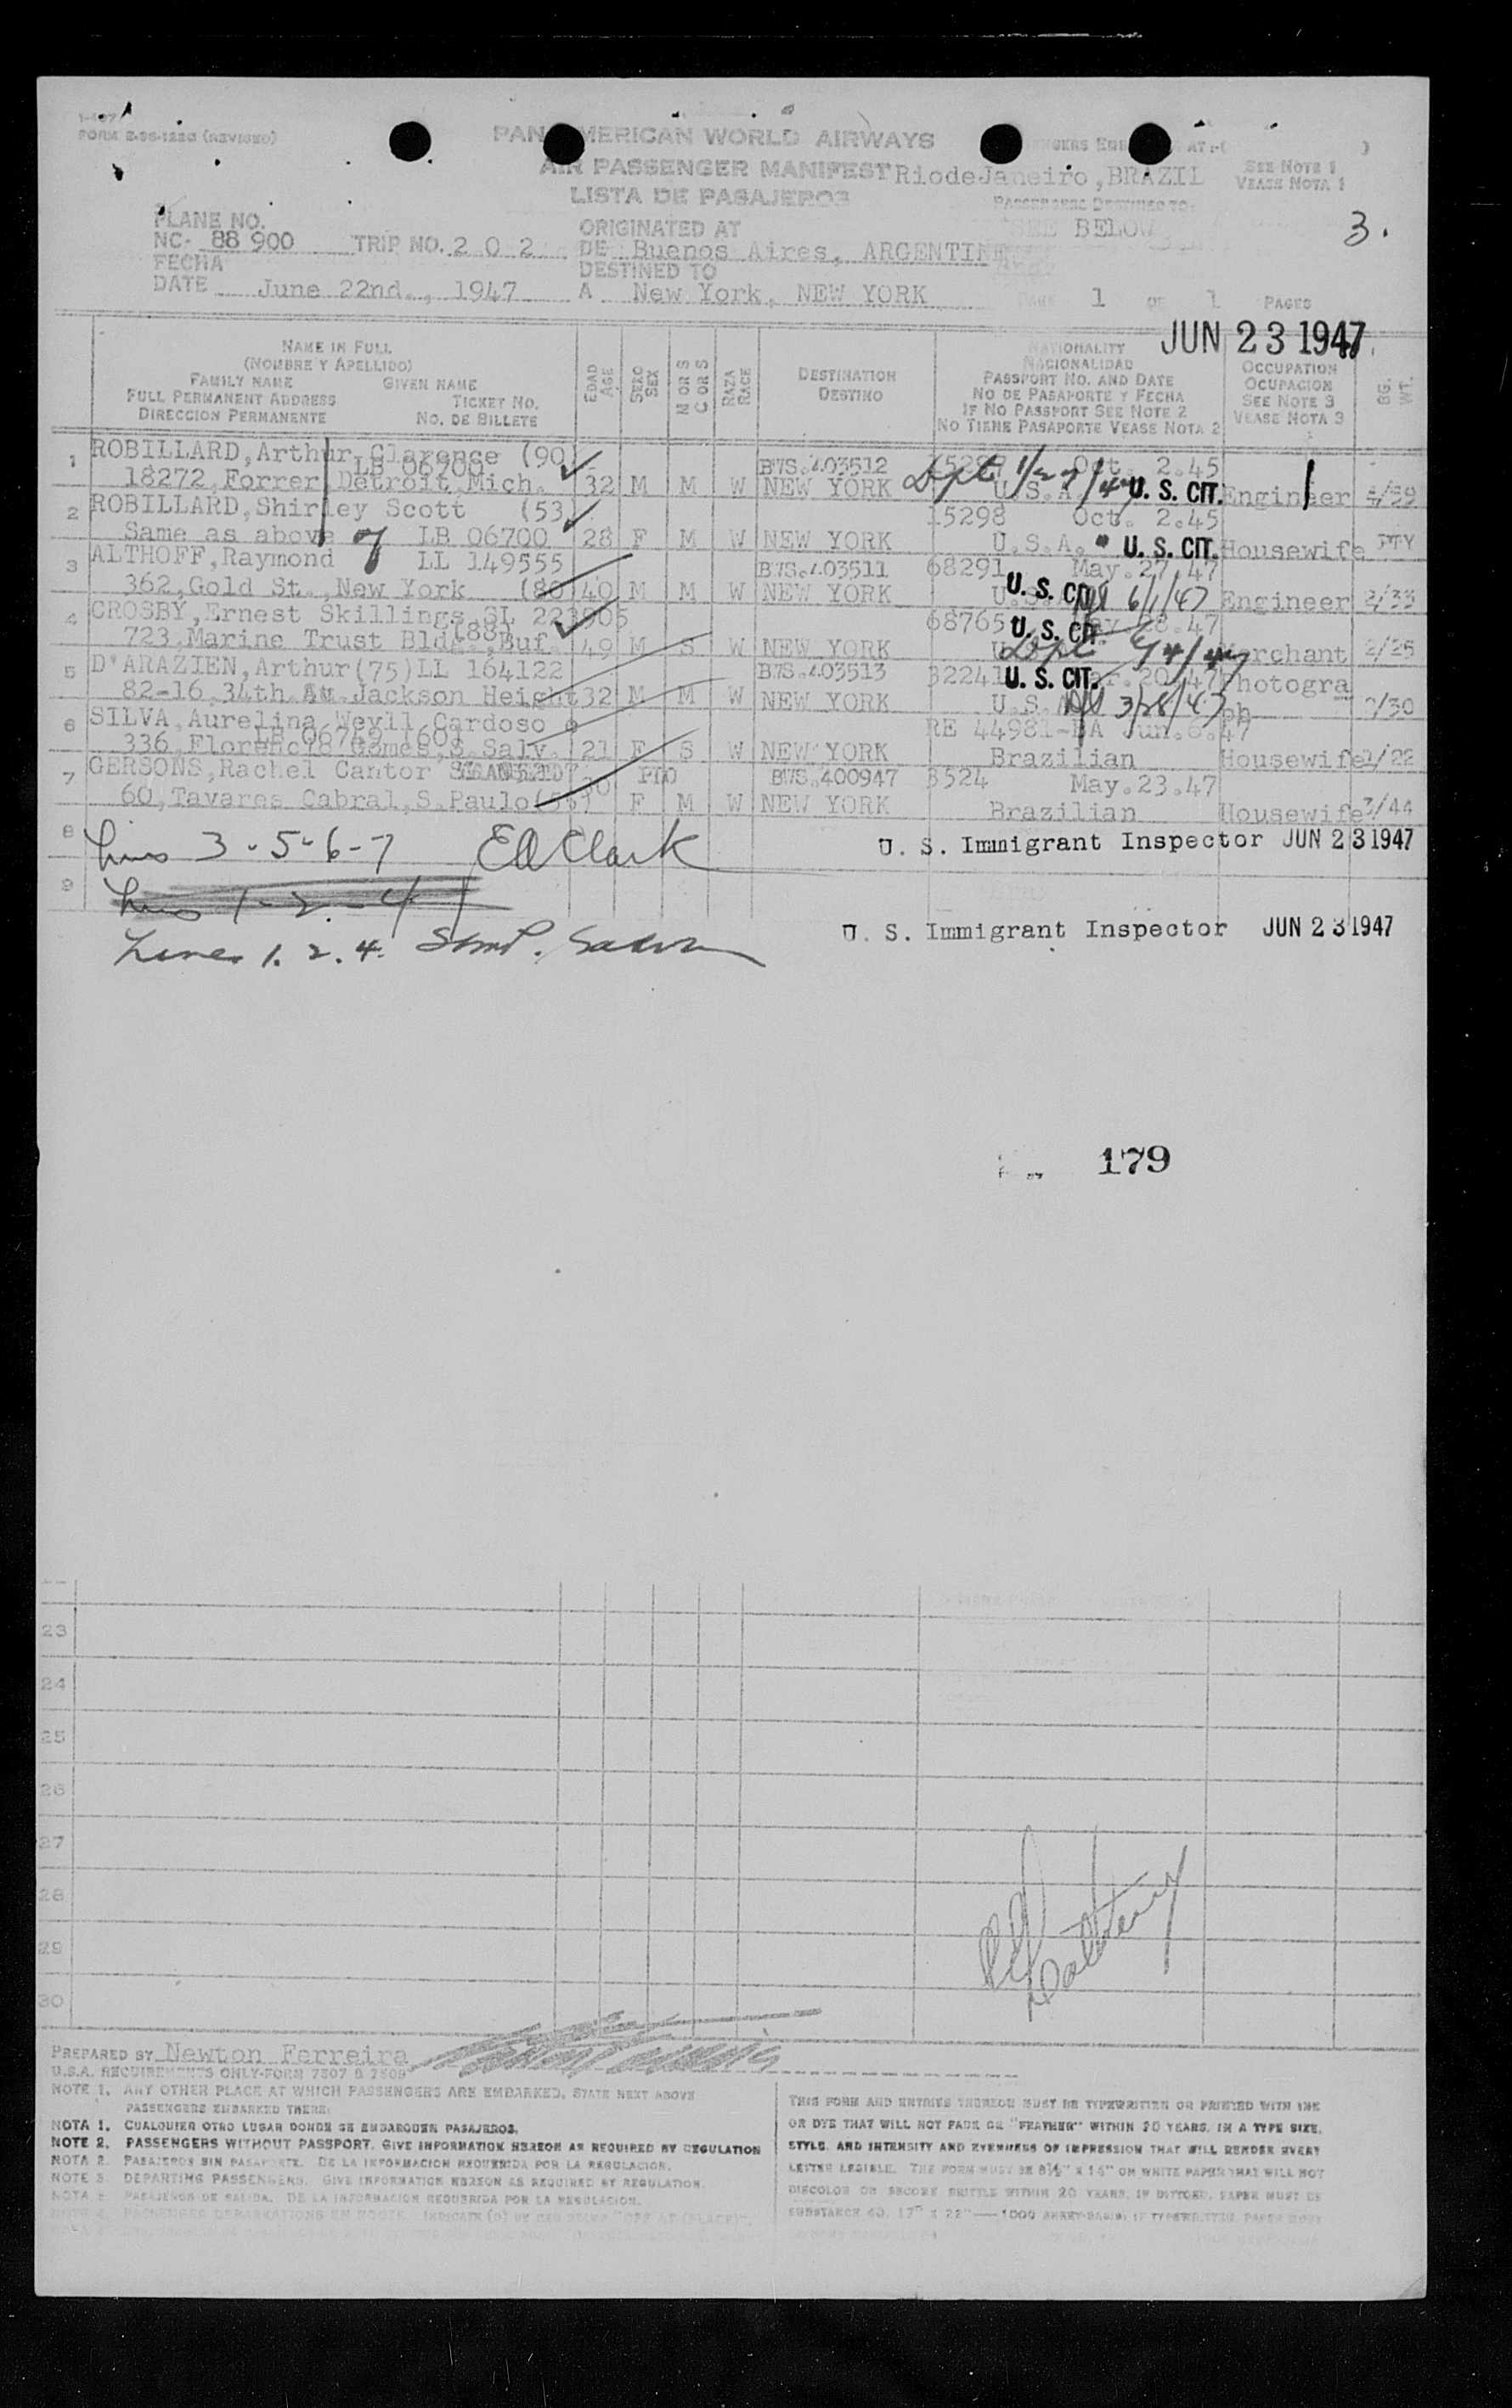 FORM 2-98-1220 (REVISED)
PAN AMERICAN WORLD AIRWAYS
AIR PASSENGER MANIFEST
Rio de Janeiro, BRAZIL
SEE NOTE 1
VEASE NOTA 1
LISTA DE PASAJEROS
PASSENGERS DESTINED TO:
SEE BELOW
3.
PLANE NO.
NC- 88 900 TRIP NO. 2 0 2
ORIGINATED AT
DE Buenos Aires, ARGENTINE
FECHA
DATE June 22nd., 1947
DESTINED TO
A New York, NEW YORK
PAGE 1 OF 1 PAGES
JUN 23 1947
NAME IN FULL
(NOMBRE Y APELLIDO)
FAMILY NAME GIVEN NAME
FULL PERMANENT ADDRESS TICKET NO.
DIRECCION PERMANENTE NO. DE BILLETE
EDAD AGE
SEXO SEX
M OR S
C OR S
RAZA RACE
DESTINATION
DESTINO
NATIONALITY
NACIONALIDAD
PASSPORT NO. AND DATE
NO DE PASAPORTE Y FECHA
IF NO PASSPORT SEE NOTE 2
NO TIENE PASAPORTE VEASE NOTA 2
OCCUPATION
OCUPACION
SEE NOTE 3
VEASE NOTA 3
BG. WT.
1 ROBILLARD, Arthur Clarence (90) LB 06700 BWS.403512 Oct. 2.45
18272, Forrer Detroit, Mich. 32 M M W NEW YORK U.S.A. U. S. CIT. Engineer
2 ROBILLARD, Shirley Scott (53) 15298 Oct. 2.45
Same as above 7 LB 06700 28 F M W NEW YORK U.S.A. U. S. CIT. Housewife
3 ALTHOFF, Raymond LL 149555 BWS.403511 68291 May.27.47
362, Gold St., New York (80) 40 M M W NEW YORK U. S. CIT. 6/1/47 Engineer 2/33
4 CROSBY, Ernest Skillings, SL 221905 68765 U. S. CIT. 28.47
723, Marine Trust Bldg., Buf. (88) 49 M S W NEW YORK Merchant 2/25
5 D'ARAZIEN, Arthur (75) LL 164122 BWS.403513 32241 U. S. CIT. 20.47 Photogra
82-16, 34th Jackson Height 32 M M W NEW YORK U.S.A. 3/28/47 ph
6 SILVA, Aurelina Weyll Cardoso LB 06749 (60) RE 44981-BA Jun.6.47
336, Florencio Gomes, S. Salv. 21 F S W NEW YORK Brazilian Housewife 1/22
7 GERSONS, Rachel Cantor BWS.400947 3524 May.23.47
60, Tavares Cabral, S. Paulo F M W NEW YORK Brazilian Housewife 3/44
8 Lines 3-5-6-7 Ed Clark U. S. Immigrant Inspector JUN 23 1947
9 Lines 1-2-4
Lines 1. 2. 4. U. S. Immigrant Inspector JUN 23 1947
179
23
24
25
26
27
28
29
30
PREPARED BY Newton Ferreira
U.S.A. REQUIREMENTS ONLY-FORM 7507 & 7509
NOTE 1. ANY OTHER PLACE AT WHICH PASSENGERS ARE EMBARKED, STATE NEXT ABOVE
PASSENGERS EMBARKED THERE:
NOTA 1. CUALQUIER OTRO LUGAR DONDE SE EMBARQUEN PASAJEROS.
NOTE 2. PASSENGERS WITHOUT PASSPORT. GIVE INFORMATION HEREON AS REQUIRED BY REGULATION
NOTA 2. PASAJEROS SIN PASAPORTE. DE LA INFORMACION REQUERIDA POR LA REGULACION.
NOTE 3. DEPARTING PASSENGERS. GIVE INFORMATION HEREON AS REQUIRED BY REGULATION.
NOTA 3. PASAJEROS DE SALIDA. DE LA INFORMACION REQUERIDA POR LA REGULACION.
THIS FORM AND ENTRIES THEREON MUST BE TYPEWRITTEN OR PRINTED WITH INK
OR DYE THAT WILL NOT FADE OR "FEATHER" WITHIN 20 YEARS, IN A TYPE SIZE,
STYLE, AND INTENSITY AND EVENNESS OF IMPRESSION THAT WILL RENDER EVERY
LETTER LEGIBLE. THE FORM MUST BE 8½" X 14" ON WHITE PAPER THAT WILL NOT
DISCOLOR OR BECOME BRITTLE WITHIN 20 YEARS. IF DITTOED, PAPER MUST BE
SUBSTANCE 40, 17" X 22"—1000